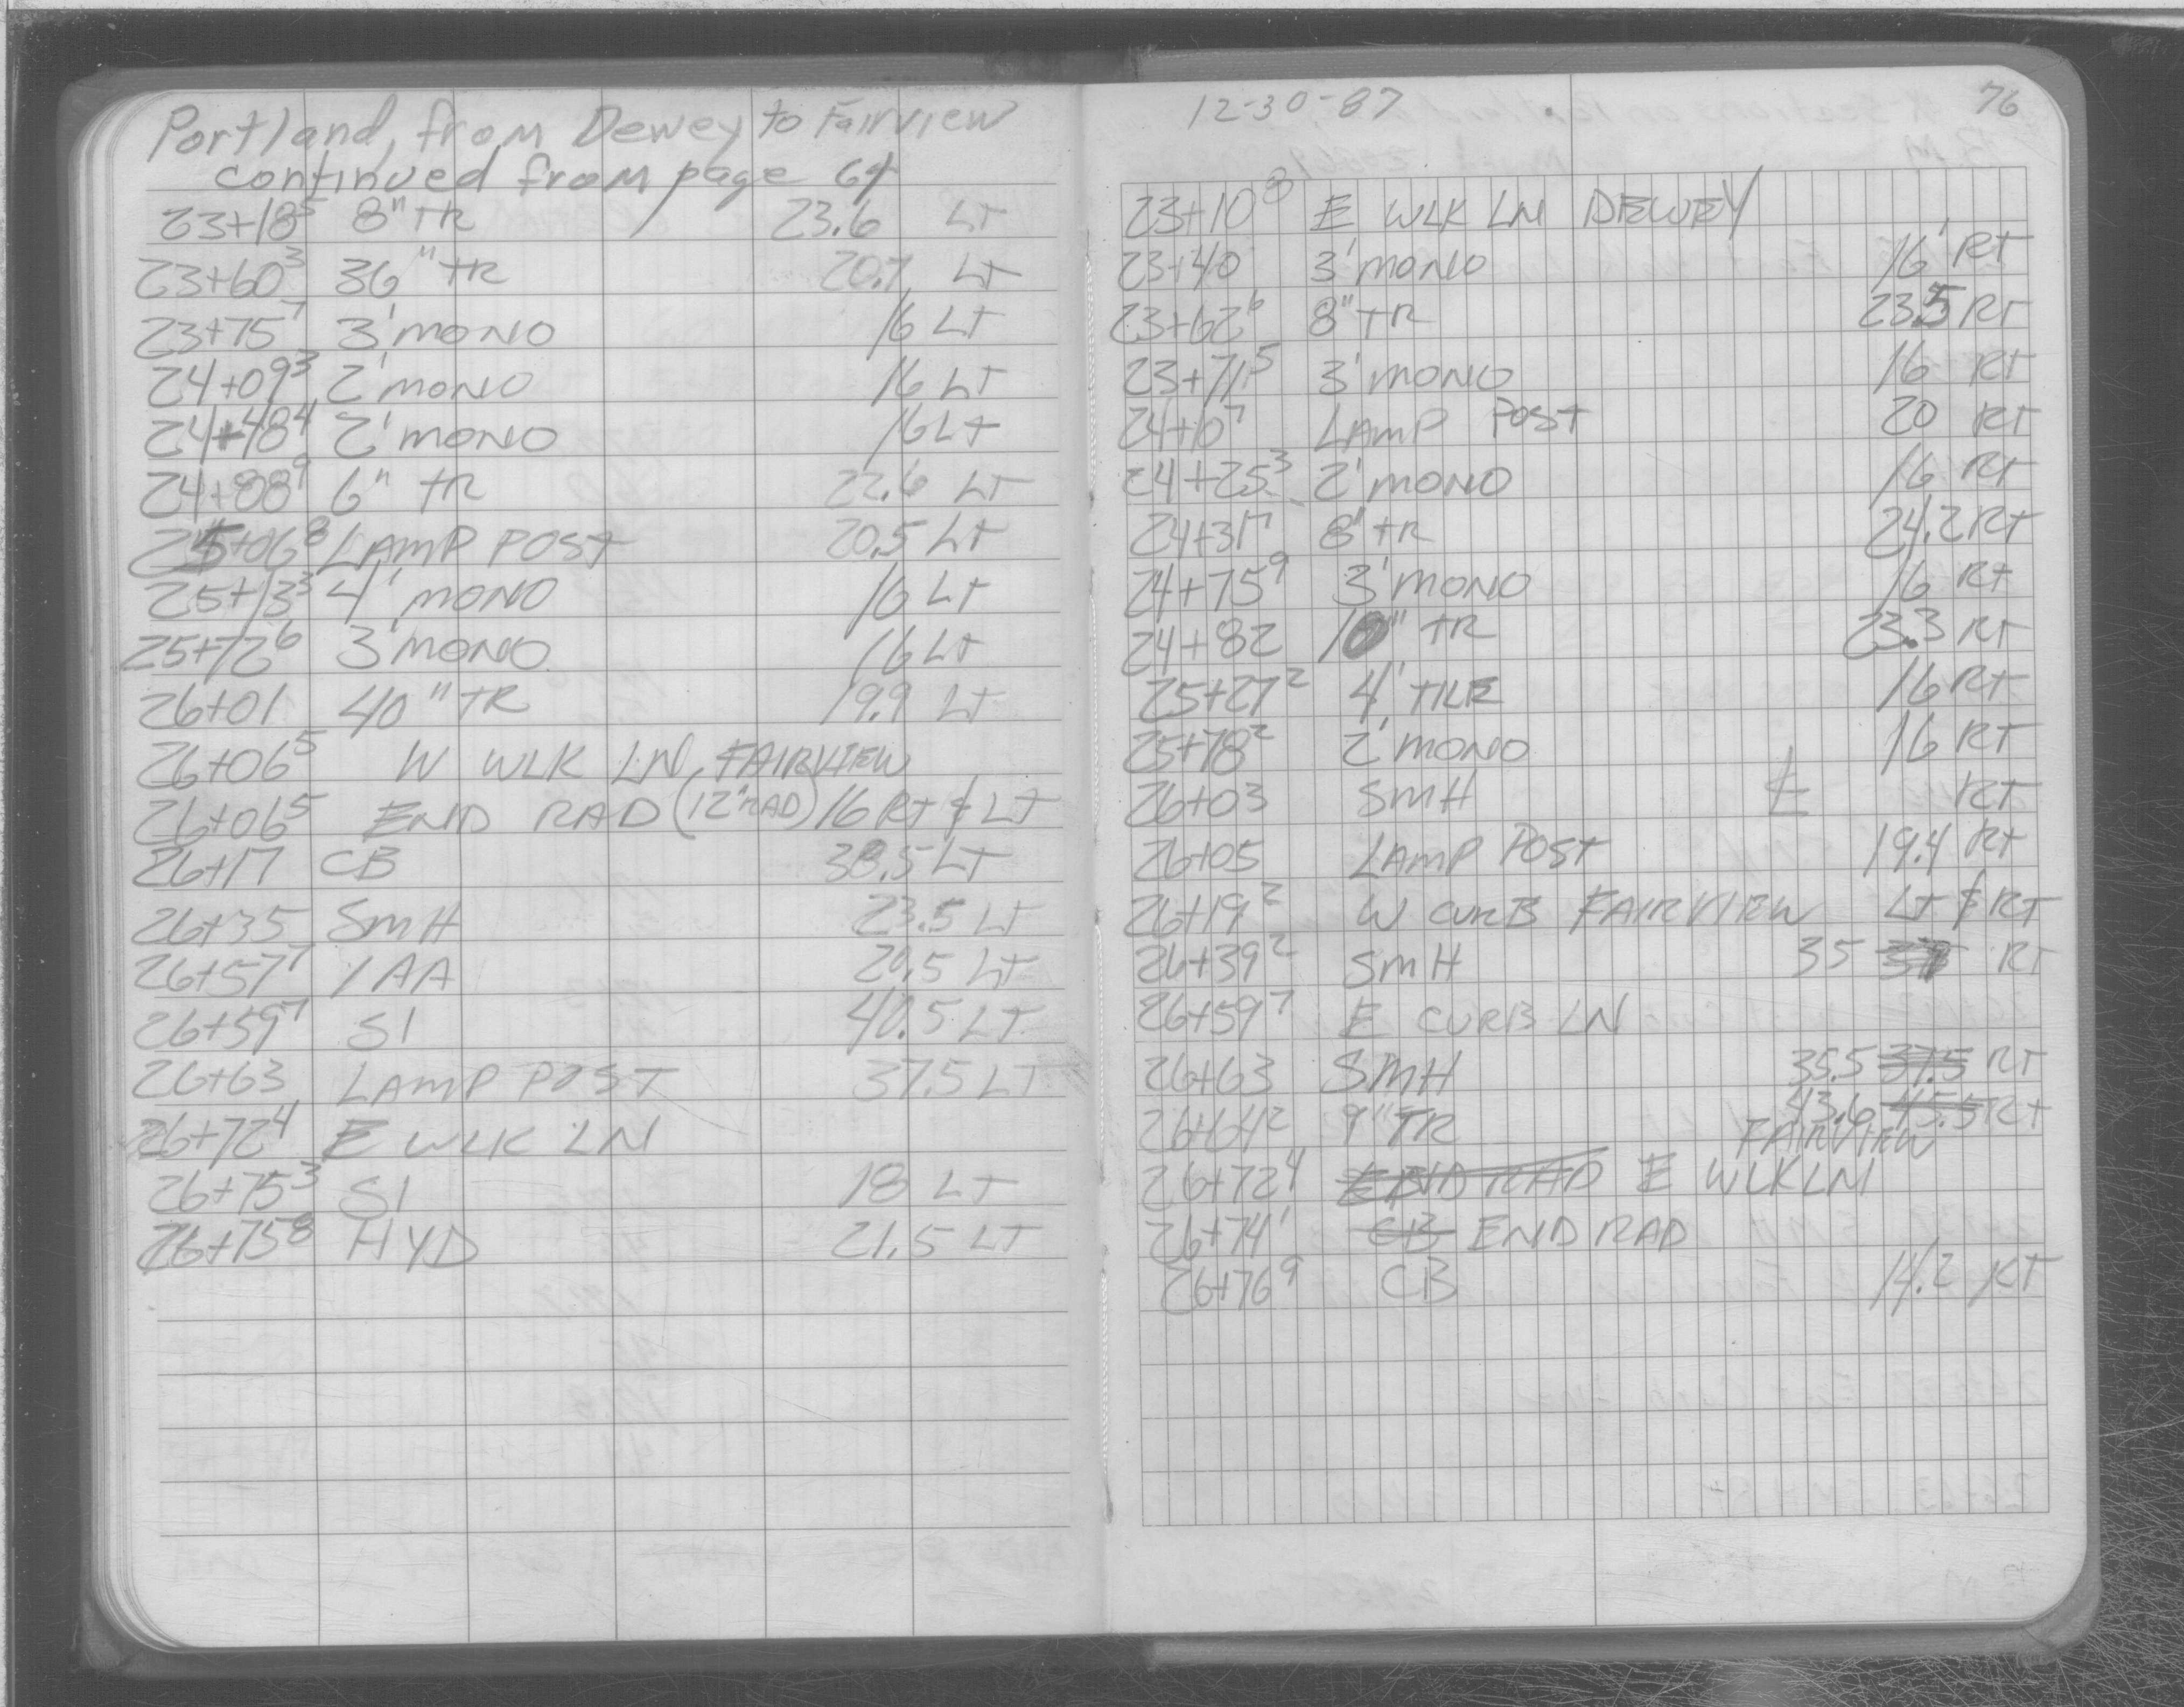 Portland, from Dewey to Fairview
continued from page 64
23+18⁵ 8" TR 23.6 LT
23+60³ 36" TR 20.7 LT
23+75⁷ 3' MONO 16 LT
24+09³ 2' MONO 16 LT
24+48⁴ 2' MONO 16 LT
24+88⁹ 6" TR 22.6 LT
25+06⁸ LAMP POST 20.5 LT
25+13³ 4' MONO 16 LT
25+72⁶ 3' MONO 16 LT
26+01 40" TR 19.9 LT
26+06⁵ W WLK LN FAIRVIEW
26+06⁵ END RAD (12" RAD) 16 RT & LT
26+17 CB 38.5 LT
26+35 SMH 23.5 LT
26+57⁷ 1AA 20.5 LT
26+59⁷ S1 40.5 LT
26+63 LAMP POST 37.5 LT
26+72⁴ E WLK LN
26+75³ S1 18 LT
26+75⁸ HYD 21.5 LT
12-30-87 76
23+10⁸ E WLK LN DEWEY
23+40 3' MONO 16' RT
23+62⁶ 8" TR 23.5 RT
23+71⁵ 3' MONO 16 RT
24+10⁷ LAMP POST 20 RT
24+25³ 2' MONO 16 RT
24+31⁷ 8" TR 24.2 RT
24+75⁹ 3' MONO 16 RT
24+82 10" TR 23.3 RT
25+27² 4' TILE 16 RT
25+78² 2' MONO 16 RT
26+03 SMH RT
26+05 LAMP POST 19.4 RT
26+19² W CURB FAIRVIEW LT & RT
26+39² SMH 35 RT
26+59⁷ E CURB LN
26+63 SMH 35.5 37.5 RT
26+64² 9" TR 43.6 45.5 RT
FAIRVIEW
26+72⁴ END RAD E WLK LN
26+74¹ CB END RAD
26+76⁹ CB 14.2 RT